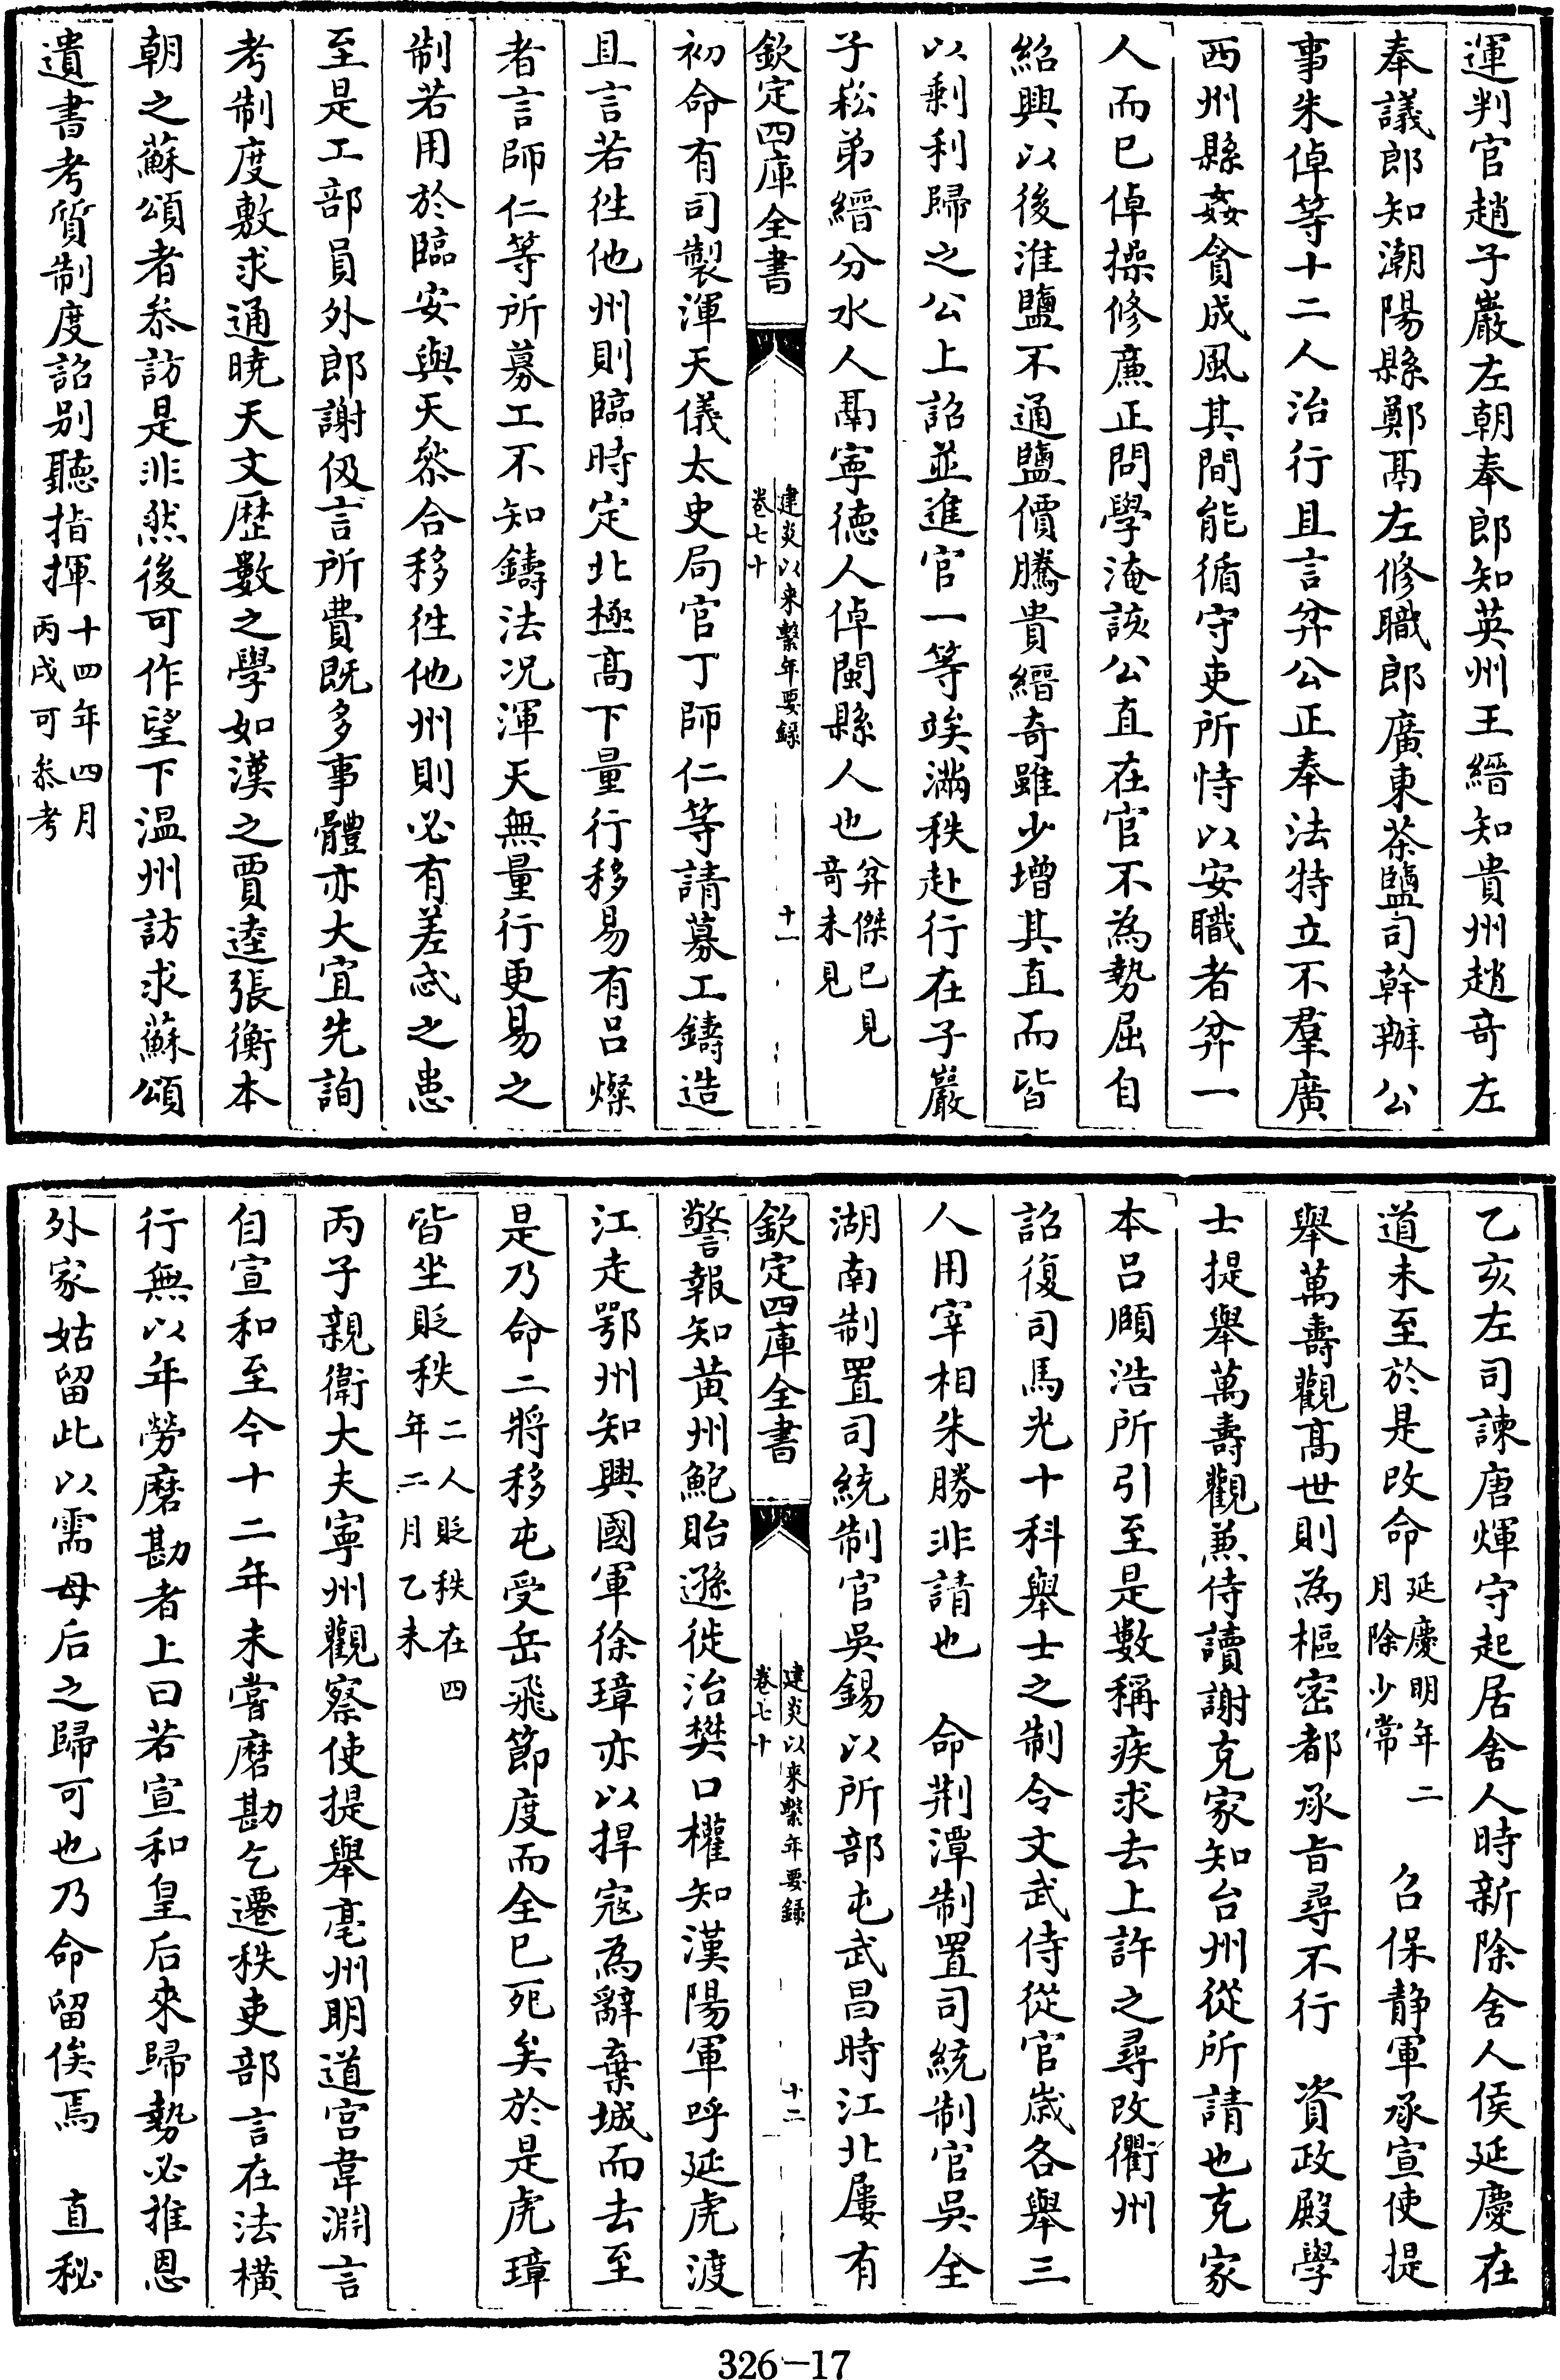 運判官趙子巖左朝奉郎知英州王縉知貴州趙奇左
奉議郎知潮陽縣鄭鬲左修職郎廣東茶鹽司幹辦公
事朱倬等十二人治行且言弅公正奉法特立不羣廣
西州縣姦貪成風其間能循守吏所恃以安職者弅一
人而已倬操修亷正問學淹該公直在官不為勢屈自
紹興以後淮鹽不通鹽價騰貴縉奇雖少增其直而皆
以剩利歸之公上詔並進官一等竢滿秩赴行在子巖
子崧弟縉分水人鬲寧徳人倬閩縣人也弅傑已見
奇未見
欽定四庫全書
建炎以来繫年要録
卷七十
十一
初命有司製渾天儀太史局官丁師仁等請募工鑄造
且言若徃他州則臨時定北極髙下量行移易有吕燦
者言師仁等所募工不知鑄法况渾天無量行更易之
制若用於臨安與天叅合移徃他州則必有差忒之患
至是工部員外郎謝伋言所費既多事體亦大宜先詢
考制度敷求通曉天文歴數之學如漢之賈逵張衡本
朝之蘇頌者叅訪是非然後可作望下温州訪求蘇頌
遺書考質制度詔别聽指揮十四年四月
丙戌可叅考
乙亥左司諫唐煇守起居舍人時新除舍人侯延慶在
道未至於是改命延慶明年二
月除少常　召保静軍承宣使提
舉萬壽觀髙世則為樞密都承旨尋不行　資政殿學
士提舉萬壽觀兼侍讀謝克家知台州從所請也克家
本吕頤浩所引至是數稱疾求去上許之尋改衢州
詔復司馬光十科舉士之制令文武侍從官歳各舉三
人用宰相朱勝非請也　命荆潭制置司統制官吳全
湖南制置司統制官吳錫以所部屯武昌時江北屢有
欽定四庫全書
建炎以来繫年要録
卷七十
十二
警報知黄州鮑貽遜徙治樊口權知漢陽軍呼延虎渡
江走鄂州知興國軍徐璋亦以捍寇為辭棄城而去至
是乃命二將移屯受岳飛節度而全已死矣於是虎璋
皆坐貶秩二人貶秩在四
年二月乙未
丙子親衛大夫寧州觀察使提舉亳州明道宫韋淵言
自宣和至今十二年未嘗磨勘乞遷秩吏部言在法横
行無以年勞磨勘者上曰若宣和皇后來歸勢必推恩
外家姑留此以需母后之歸可也乃命留俟焉　直秘
326—17